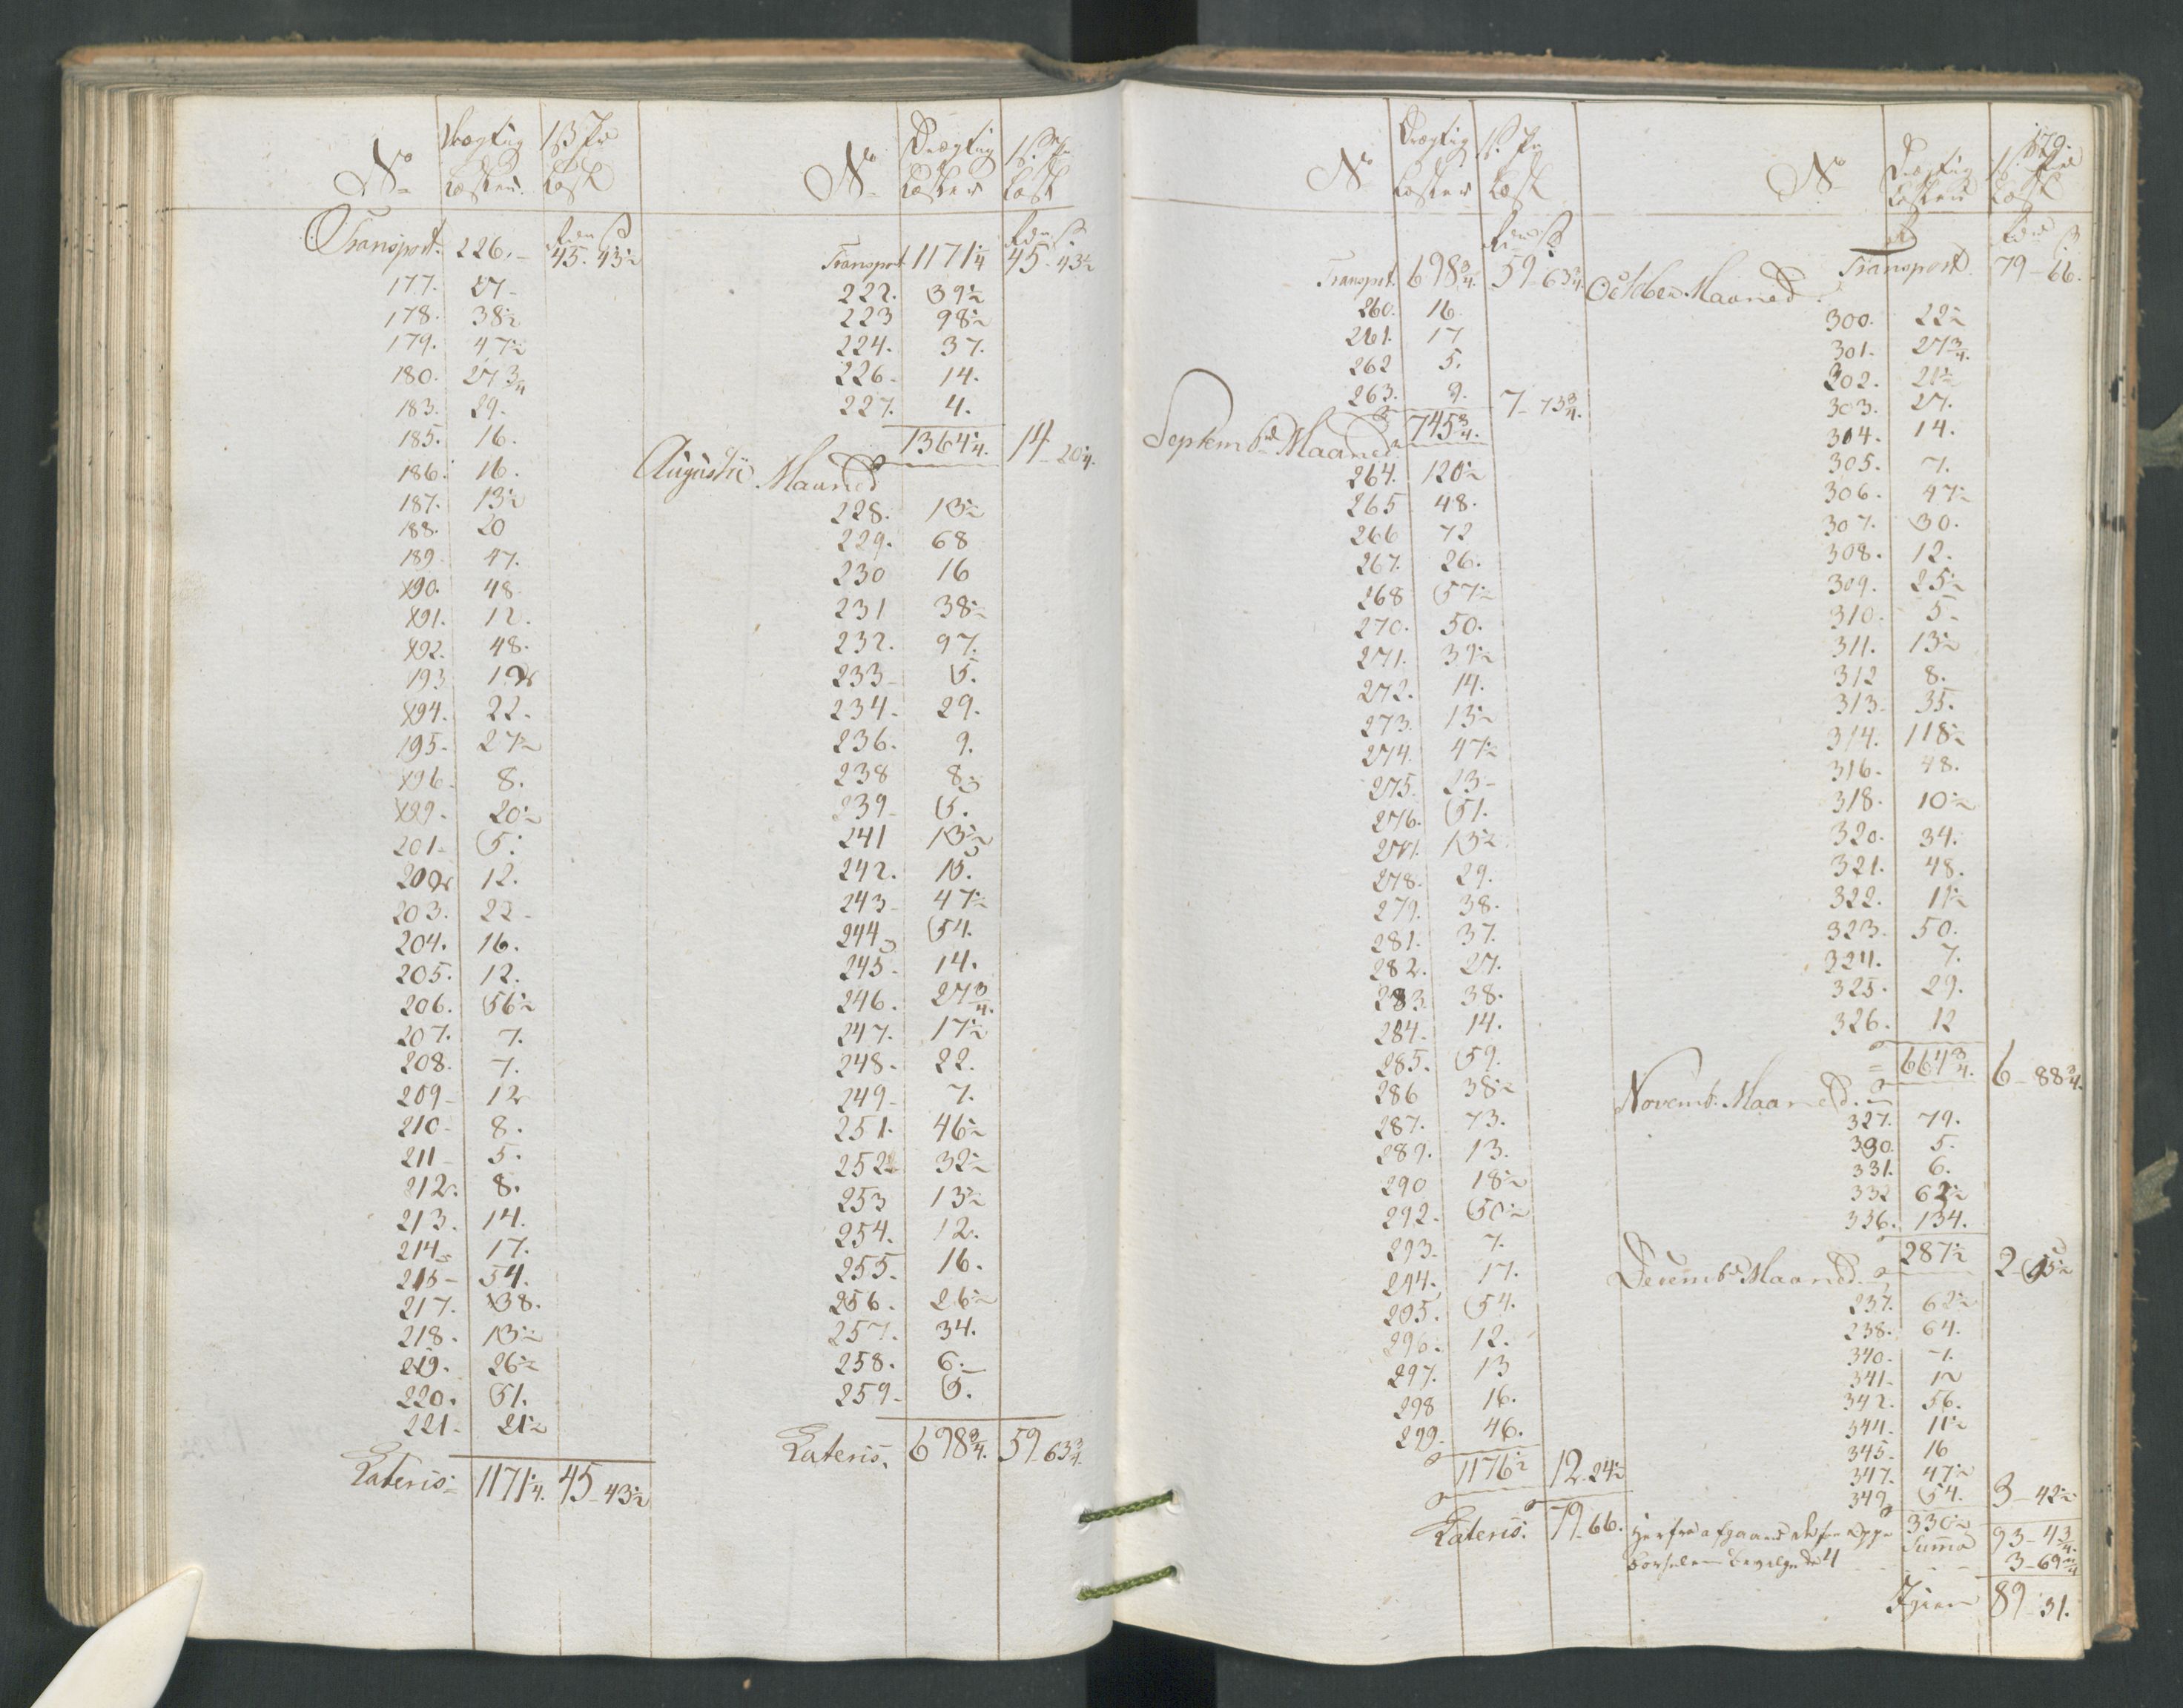 No Drægtig Læster 1 ß Pr Læst
Rdr ß
Transport. 226.- 45. 43½
177. 27-
178. 38½
179. 47½
180. 27¾
183. 29.
185. 16.
186. 16.
187. 13½
188. 20
189 47.
190. 48
191. 12.
192. 48.
193 12
194. 22.
195. 27½
196. 8.
199. 20½
201. 5.
202 12.
203. 22-
204. 16.
205. 12.
206. 56½
207. 7.
208. 7.
209- 12
210- 8.
211- 5.
212. 8.
213. 14.
214 17.
215- 54.
217. 38.
218. 13½
219. 26½
220. 51.
221- 21½
Lateris 1171¼. 45- 43½
No Drægtig Læster 1 ß Pr Læst
Rdr ß
Transport 1171¼ 45- 43½
222. 39½
223 98½
224. 37.
226- 14.
227. 4.
1364¼. 14- 20¼.
Augustii Maaned
228. 13½
229. 68
230 16
231 38½
232. 97.
233- 5.
234- 29.
236. 9.
238 8
239- 5.
241 13½
242. 15.
243- 47½
244 54.
245- 14.
246. 27¾.
247. 17½
248. 22.
249- 7.
251. 46½
252 32½
253 13½
254. 12.
255. 16.
256. 26½
257. 34.
258. 6.
259- 5.
Lateris. 698¾. 59- 63¾
No Drægtig Læster 1 ß Pr Læst
Rdr ß
Transport. 698¾. 59- 63¾
260. 16
261. 17
262 5.
263. 9. 7- 73¾.
745¾.
Septembr Maaned
264. 120½
265 48.
266 72
267. 26.
268 57½
270. 50.
271. 39½
272. 14.
273. 13½
274. 47½
275. 23-
276. 51.
277. 13½
278. 29.
279. 38.
281. 37.
282. 27.
283. 38.
284. 14.
285. 59.
286 38½
287. 73.
289. 13.
290 18½
292. 50½
293- 7.
294. 17.
295. 54.
296. 12.
297. 13
298 16.
299. 46.
1176½ 12. 24½
Lateris. 79. 66.
179.
No Drægtig Læster 1 ß Pr Læst
Rdr ß
Transport. 79- 66.
October Maaned.
300. 22½
301. 27¾.
302. 21½
303. 27.
304. 14.
305. 7.
306. 47½
307. 30.
308. 12.
309. 25½
310. 5-
311. 13½
312 8.
313- 35.
314. 118½
316- 48.
318. 10½
320. 34.
321. 48.
322. 11½
323. 50.
324. 7.
325. 29.
326. 12
664¾. 6- 88¾.
Novemb. Maaned.
327. 79.
330. 5.
331. 6.
332 62½
336. 134.
287½ 2- 95½
Decembr Maaned.
237. 62½
238. 64.
340. 7.
341- 12
342. 56.
344. 11½
345. 16
347. 47½
349 54. 3- 42½
330½
Summa 93- 4¾.
Herfra afgaaer
3- 69¾
Igien 89- 31.